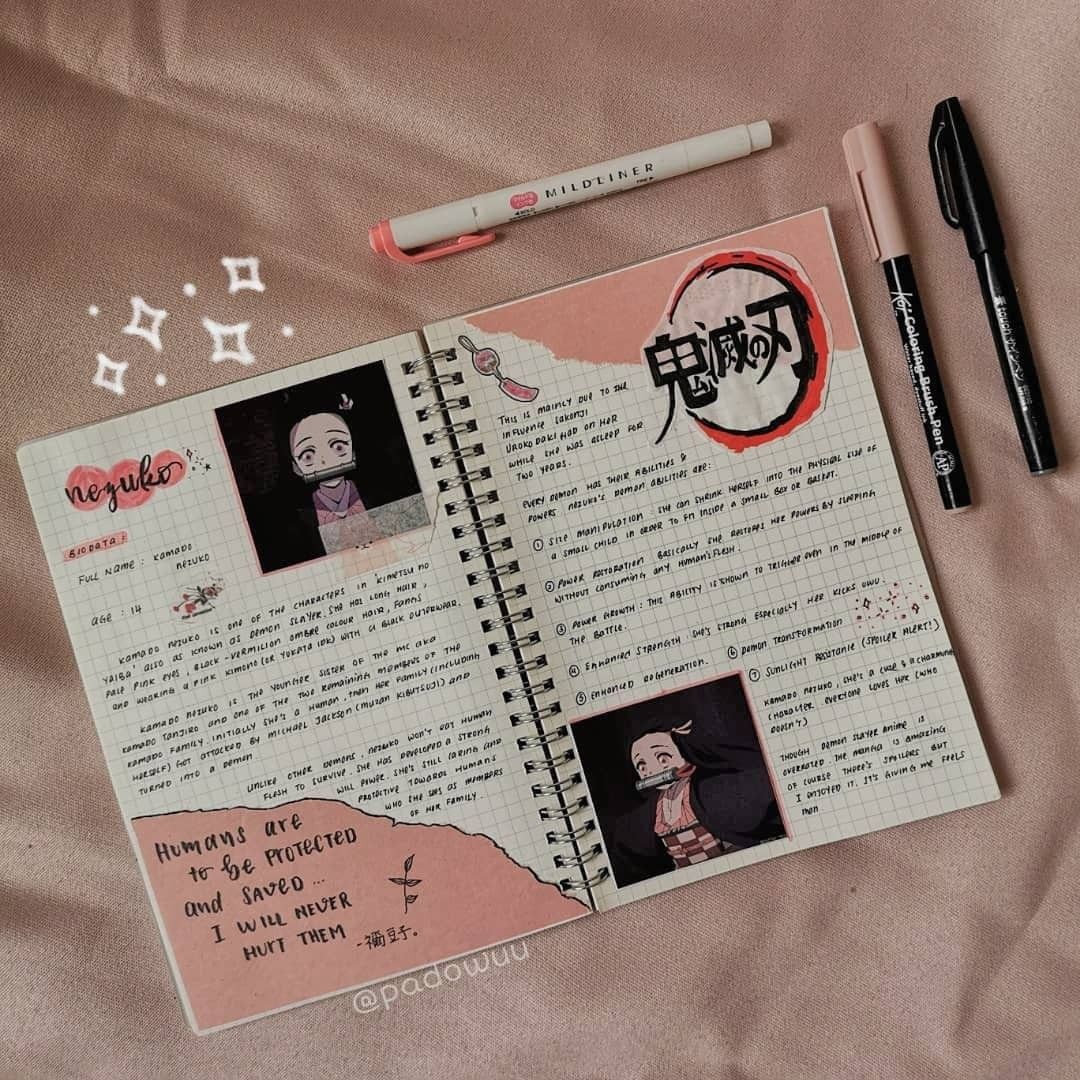 nezuko
BIODATA :
FULL NAME : KAMADO
NEZUKO
AGE : 14
KAMADO NEZUKO IS ONE OF THE CHARACTERS IN 'KIMETSU NO
YAIBA', ALSO AS KNOWN AS DEMON SLAYER. SHE HAS LONG HAIR,
PALE PINK EYES, BLACK-VERMILION OMBRE COLOUR HAIR, FANGS
AND WEARING A PINK KIMONO (OR YUKATA IDK) WITH A BLACK OUTERWEAR.
KAMADO NEZUKO IS THE YOUNGER SISTER OF THE MC AKA
KAMADO TANJIRO AND ONE OF THE TWO REMAINING MEMBERS OF THE
KAMADO FAMILY. INITIALLY SHE'S A HUMAN, THEN HER FAMILY (INCLUDING
HERSELF) GOT ATTACKED BY MICHAEL JACKSON (MUZAN KIBUTSUJI) AND
TURNED INTO A DEMON.
UNLIKE OTHER DEMONS, NEZUKO WON'T EAT HUMAN
FLESH TO SURVIVE. SHE HAS DEVELOPED A STRONG
WILL POWER. SHE'S STILL CARING AND
PROTECTIVE TOWARDS HUMANS
WHO SHE SEES AS MEMBERS
OF HER FAMILY.
HUMANS ARE
TO BE PROTECTED
AND SAVED...
I WILL NEVER
HURT THEM
-禰豆子。
THIS IS MAINLY DUE TO THE
INFLUENCE SAKONJI
UROKODAKI HAD ON HER
WHILE SHE WAS ASLEEP FOR
TWO YEARS.
鬼滅の刃
EVERY DEMON HAS THEIR ABILITIES &
POWERS NEZUKO'S DEMON ABILITIES ARE:
① SIZE MANIPULATION : SHE CAN SHRINK HERSELF INTO THE PHYSICAL SIZE OF
A SMALL CHILD IN ORDER TO FIT INSIDE A SMALL BOX OR BASKET.
② POWER RESTORATION BASICALLY SHE RESTORES HER POWERS BY SLEEPING
WITHOUT CONSUMING ANY HUMAN'S FLESH.
③ POWER GROWTH : THIS ABILITY IS SHOWN TO TRIGGER EVEN IN THE MIDDLE OF
THE BATTLE.
④ ENHANCED STRENGTH : SHE'S STRONG ESPECIALLY HER KICKS UWU.
⑤ ENHANCED REGENERATION. ⑥ DEMON TRANSFORMATION
⑦ SUNLIGHT RESISTANCE (SPOILER ALERT!)
KAMADO NEZUKO, SHE'S A CUTE & A CHARMING
CHARACTER. EVERYONE LOVES HER (WHO
DOESN'T)
THOUGH DEMON SLAYER ANIME IS
OVERRATED. THE MANGA IS AMAZING
OF COURSE THERE'S SPOILERS BUT
I ENJOYED IT. IT'S GIVING ME FEELS
MAN
MILDLINER
Koi Coloring Brush Pen
touch サインペン
@padowuu